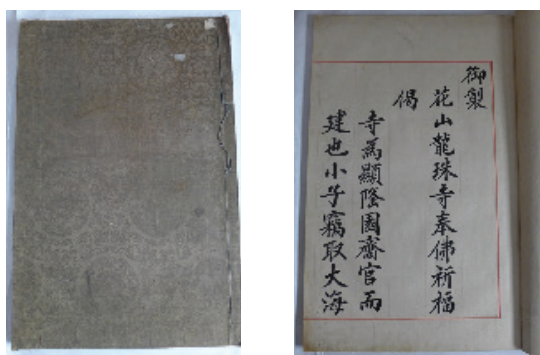 御製
花山龍珠寺奉佛祈福
偈
寺爲顯隆園齋官而
建也小子竊取大海